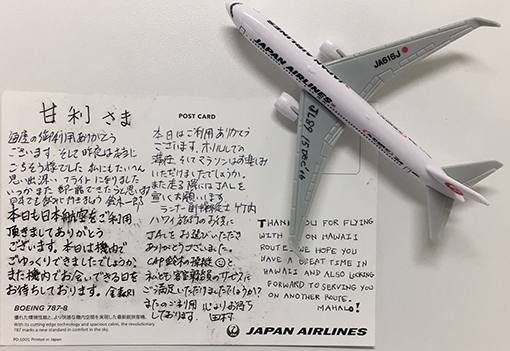 甘利さま
POST CARD
毎度の御利用ありがとう
ございます。そして昨夜は
ごちそう様でした
思い出深いフライトになりました
いつかまた
鈴木一郎
本日も日本航空をご利用
頂きましてありがとう
ございます。本日は機内で
ごゆっくりできましたでしょうか。
また機内でお会いできる日を
お待ちしております。
本日はご利用ありがとう
ございます。ホノルルでの
滞在、そしてマラソンはお楽しみ
いただけましたでしょうか。
また来る際にはJALを
宜しくお願いします。
竹内
JALをお選びいただき
ありがとうございました。
CAP鈴木の操縦
私ども客室乗務員のサービスに
ご満足いただけましたでしょうか?
またのご利用 心よりお待ち
しております。田村
THANK YOU FOR FLYING
WITH ON HAWAII
ROUTE. WE HOPE YOU
HAVE A GREAT TIME IN
HAWAII AND ALSO LOOKING
FORWARD TO SERVING YOU
ON ANOTHER ROUTE.
MAHALO!
BOEING 787-8
優れた環境性能と、より快適な機内空間を実現した最新鋭旅客機。
With its cutting edge technology and spacious cabin, the revolutionary
787 marks a new standard in comfort in the sky.
PO-1001 Printed in Japan
JAPAN AIRLINES
JAPAN AIRLINES
JAPAN AIRLINES
JA618J
JL09
15 DEC '16